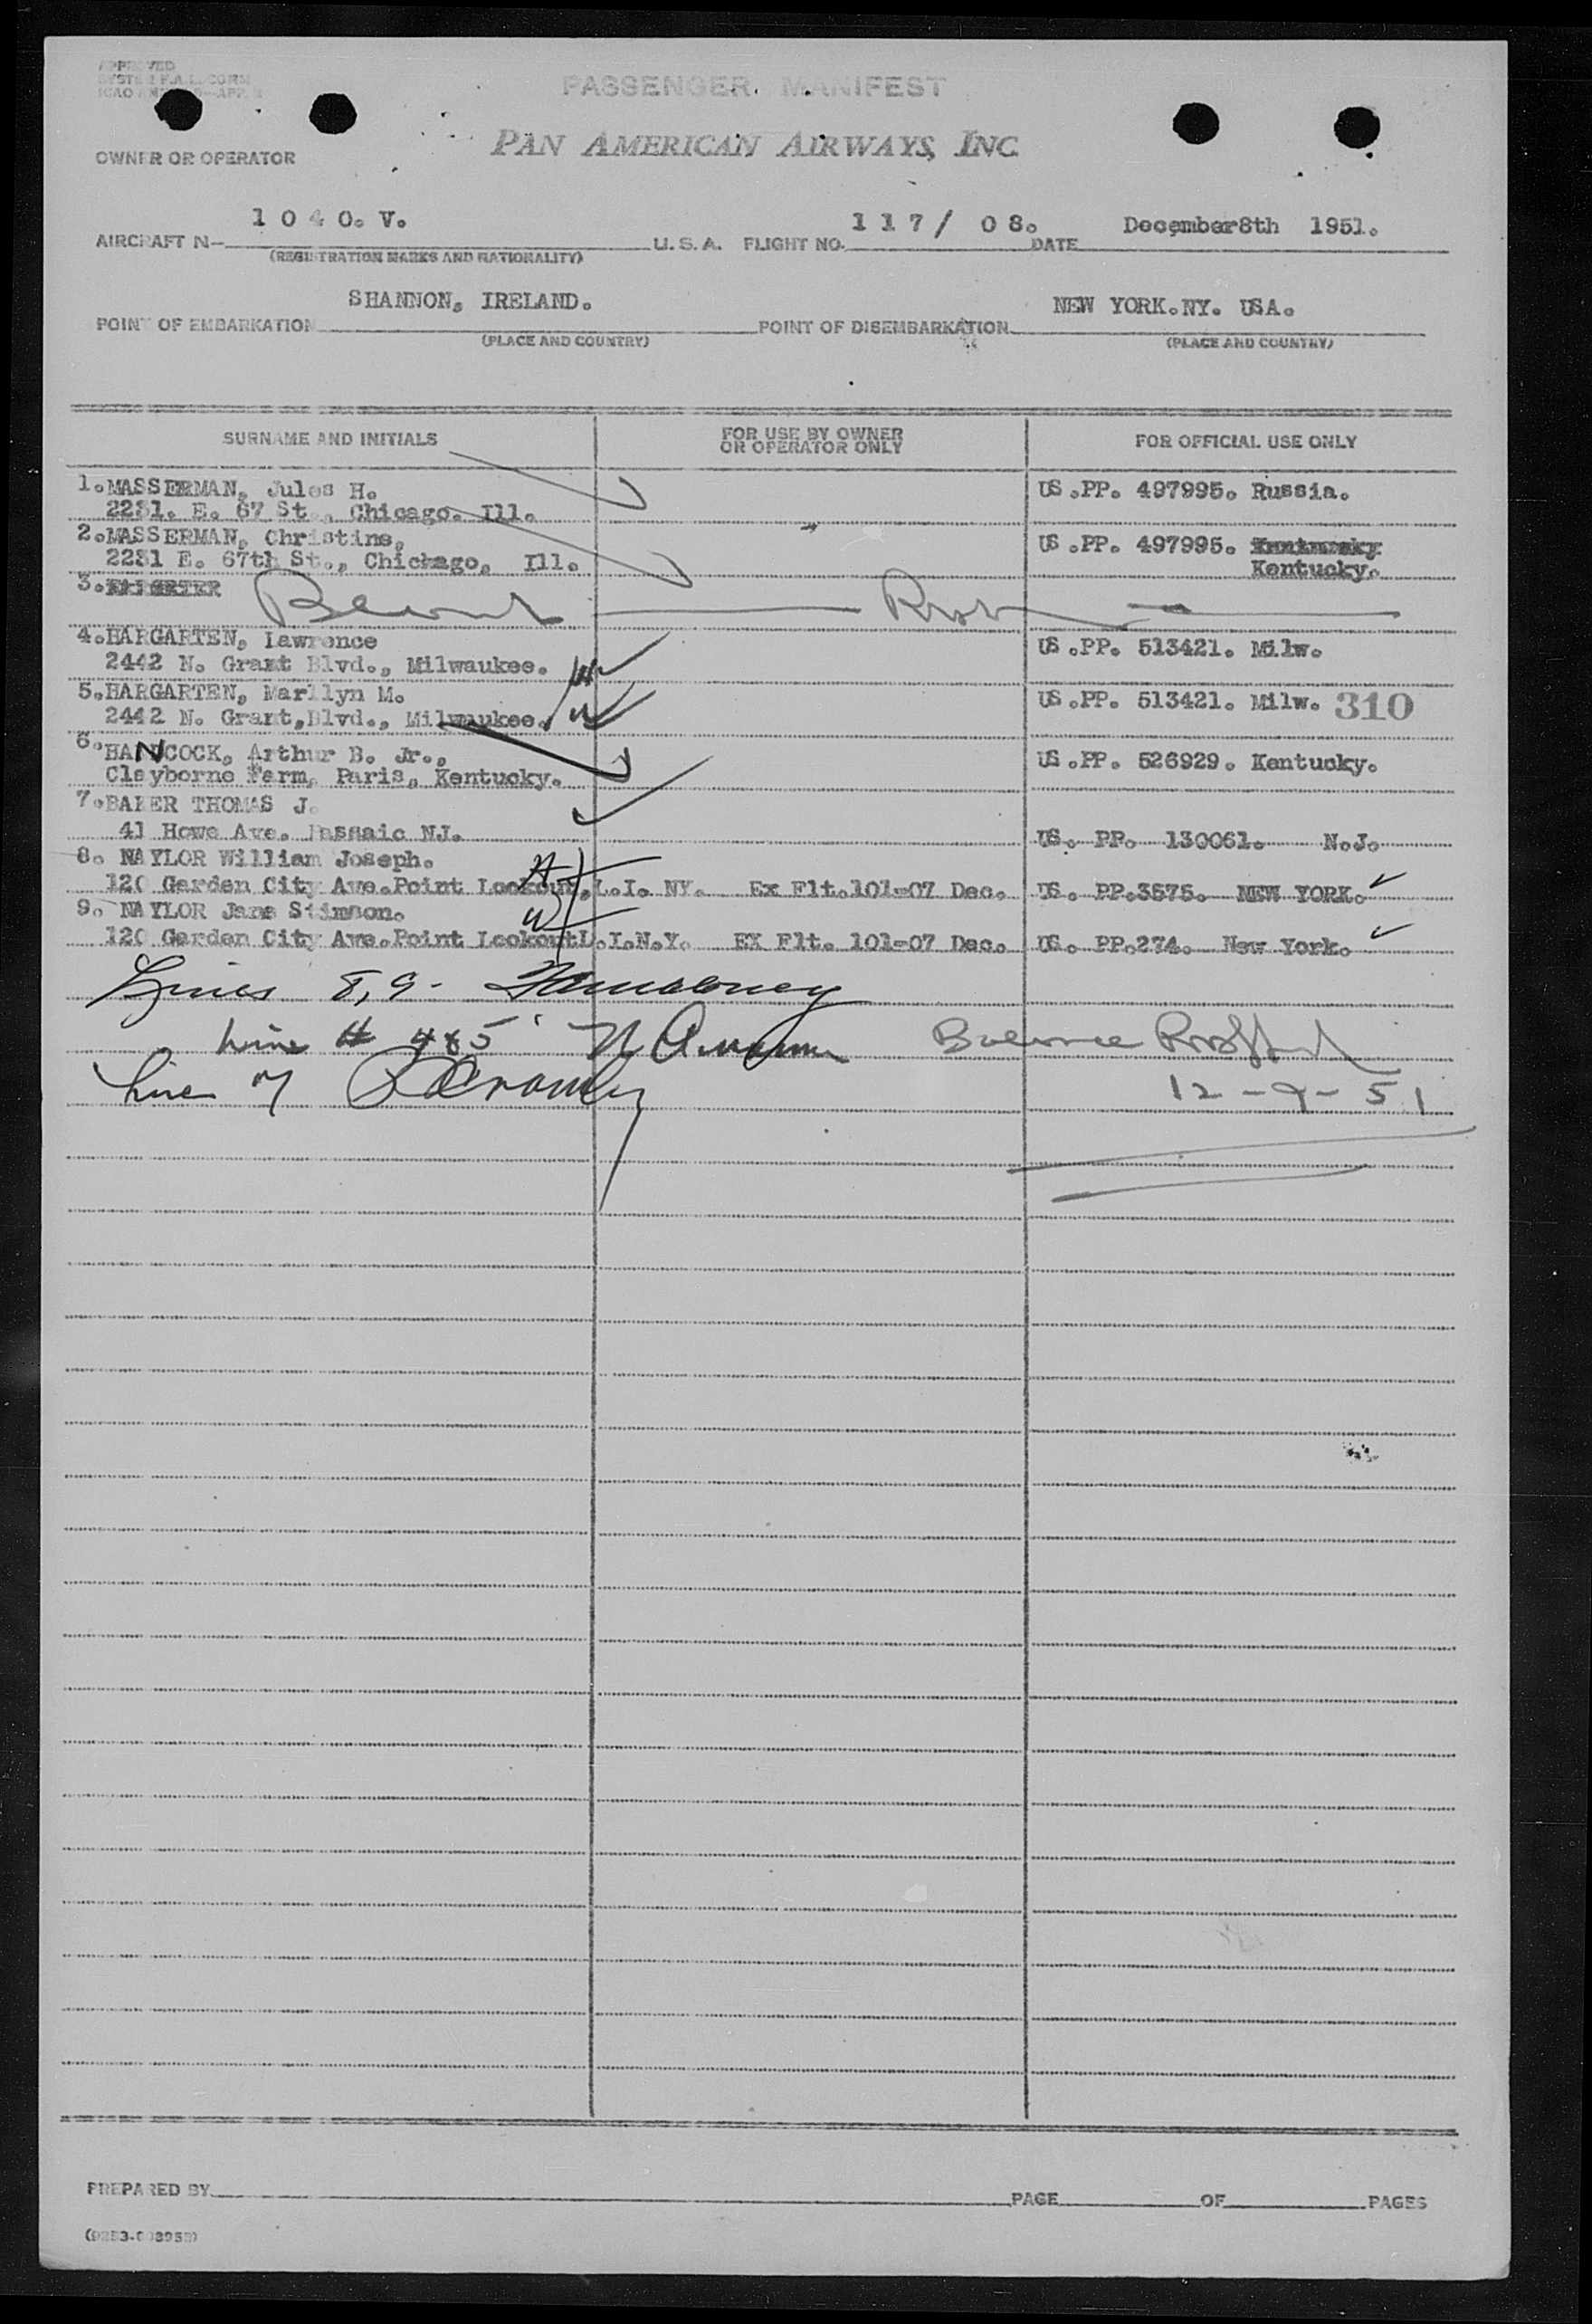 APPROVED
PASSENGER MANIFEST
PAN AMERICAN AIRWAYS, INC.
OWNER OR OPERATOR
1 0 4 0. V.
1 1 7 / 0 8.
December8th 1951.
AIRCRAFT N- U. S. A. FLIGHT NO. DATE
(REGISTRATION MARKS AND NATIONALITY)
SHANNON, IRELAND.
NEW YORK.NY. USA.
POINT OF EMBARKATION POINT OF DISEMBARKATION
(PLACE AND COUNTRY) (PLACE AND COUNTRY)
SURNAME AND INITIALS FOR USE BY OWNER OR OPERATOR ONLY FOR OFFICIAL USE ONLY
1.MASSERMAN, Jules H. US.PP. 497995. Russia.
2231. E. 67 St., Chicago. Ill.
2.MASSERMAN, Christine, US.PP. 497995.
2231 E. 67th St., Chicago, Ill. Kentucky.
3.
4.HARGARTEN, Lawrence US.PP. 513421. Milw.
2442 N. Grant Blvd., Milwaukee.
5.HARGARTEN, Marilyn M. US.PP. 513421. Milw. 310
2442 N. Grant,Blvd., Milwaukee.
6.HANCOCK, Arthur B. Jr., US.PP. 526929. Kentucky.
Clayborne Farm, Paris, Kentucky.
7.BAKER THOMAS J.
41 Howe Ave. Passaic NJ. US. PP. 130061. N.J.
8. NAYLOR William Joseph.
120 Garden City Ave.Point Lookout.L.I. NY. Ex Flt.101-07 Dec. US. PP.3575. NEW YORK.
9. NAYLOR Jane Stimson.
120 Garden City Ave.Point LookoutL.I.N.Y. EX Flt. 101-07 Dec. US. PP.274. New York.
Lines 8, 9-
Line # 4&5 Balance
Line 7 12-9-51
PREPARED BY PAGE OF PAGES